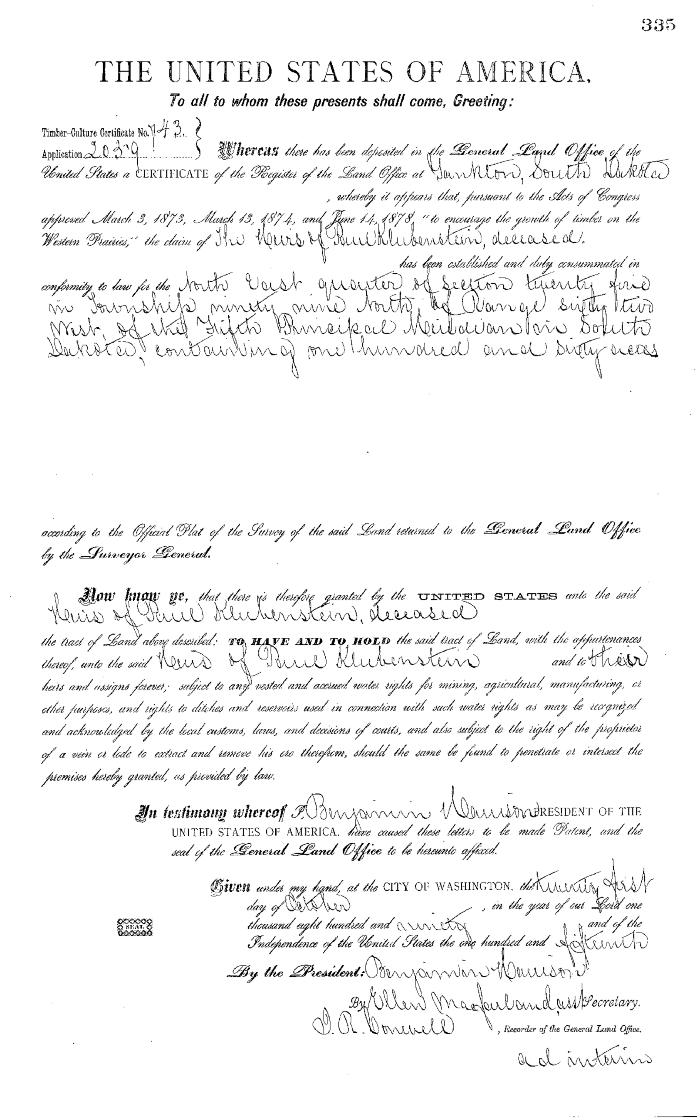 335
THE UNITED STATES OF AMERICA.
To all to whom these presents shall come, Greeting:
Timber-Culture Certificate No. 743.
Application 2039
Whereas there has been deposited in the General Land Office of the
United States a CERTIFICATE of the Register of the Land Office at Yankton, South Dakota
, whereby it appears that, pursuant to the Acts of Congress
approved March 3, 1873, March 13, 1874, and June 14, 1878, "to encourage the growth of timber on the
Western Prairies," the claim of The Heirs of Paul Klubenstein, deceased.
has been established and duly consummated in
conformity to law for the North East quarter of section twenty five
in Township ninety nine North, of Range sixty two
West, of the Fifth Principal Meridian in South
Dakota, containing one hundred and sixty acres
according to the Official Plat of the Survey of the said Land returned to the General Land Office
by the Surveyor General.
Now know ye, that there is therefore granted by the UNITED STATES unto the said
Heirs of Paul Klubenstein, deceased
the tract of Land above described: TO HAVE AND TO HOLD the said tract of Land, with the appurtenances
thereof, unto the said Heirs of Paul Klubenstein and to their
heirs and assigns forever; subject to any vested and accrued water rights for mining, agricultural, manufacturing, or
other purposes, and rights to ditches and reservoirs used in connection with such water rights as may be recognized
and acknowledged by the local customs, laws, and decisions of courts, and also subject to the right of the proprietor
of a vein or lode to extract and remove his ore therefrom, should the same be found to penetrate or intersect the
premises hereby granted, as provided by law.
In testimony whereof I, Benjamin Harrison PRESIDENT OF THE
UNITED STATES OF AMERICA, have caused these letters to be made Patent, and the
seal of the General Land Office to be hereunto affixed.
Given under my hand, at the CITY OF WASHINGTON, the twenty first
day of October , in the year of our Lord one
thousand eight hundred and ninety and of the
SEAL
Independence of the United States the one hundred and fifteenth
By the President: Benjamin Harrison
By Ellen Macfarland, asst Secretary.
I. R. Conwell , Recorder of the General Land Office.
ad interim